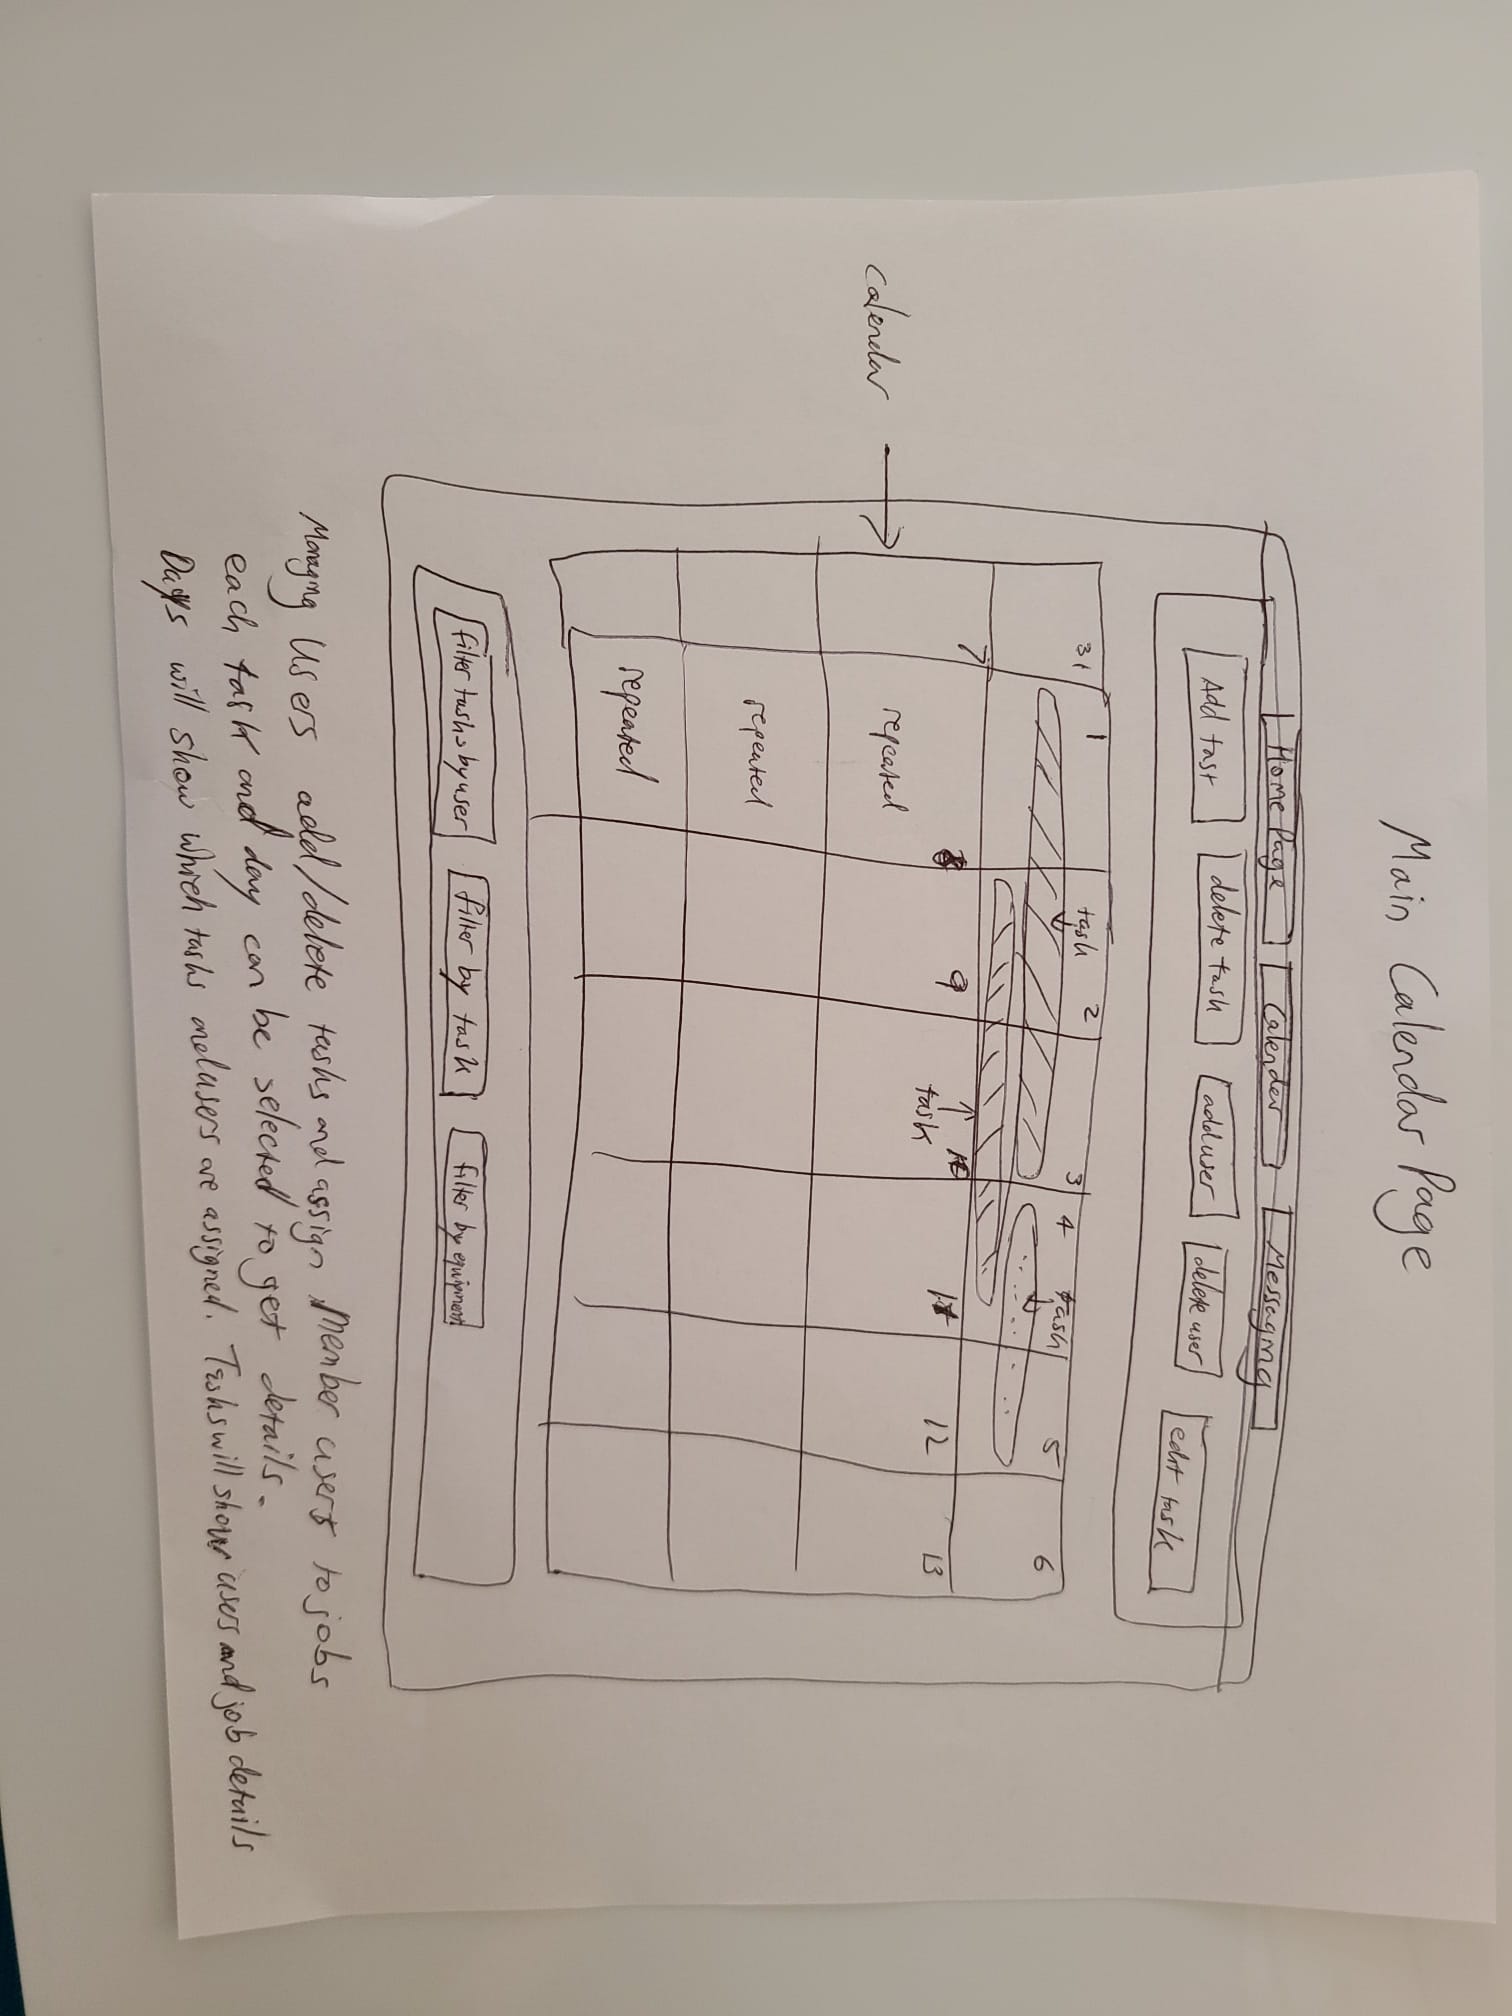 Main Calendar Page
Home Page Calender Messaging
Add tast delete task add user delete user edit task
31 1 task 2 3 4 task 5 6
7 8 9 10 11 12 13
task
Calendar
repeated
repeated
repeated
filter tasks by user filter by task filter by equipment
Managing Users add/delete tasks and assign Member users to jobs
each task and day can be selected to get details.
Days will show which tasks and users are assigned. Tasks will show users and job details